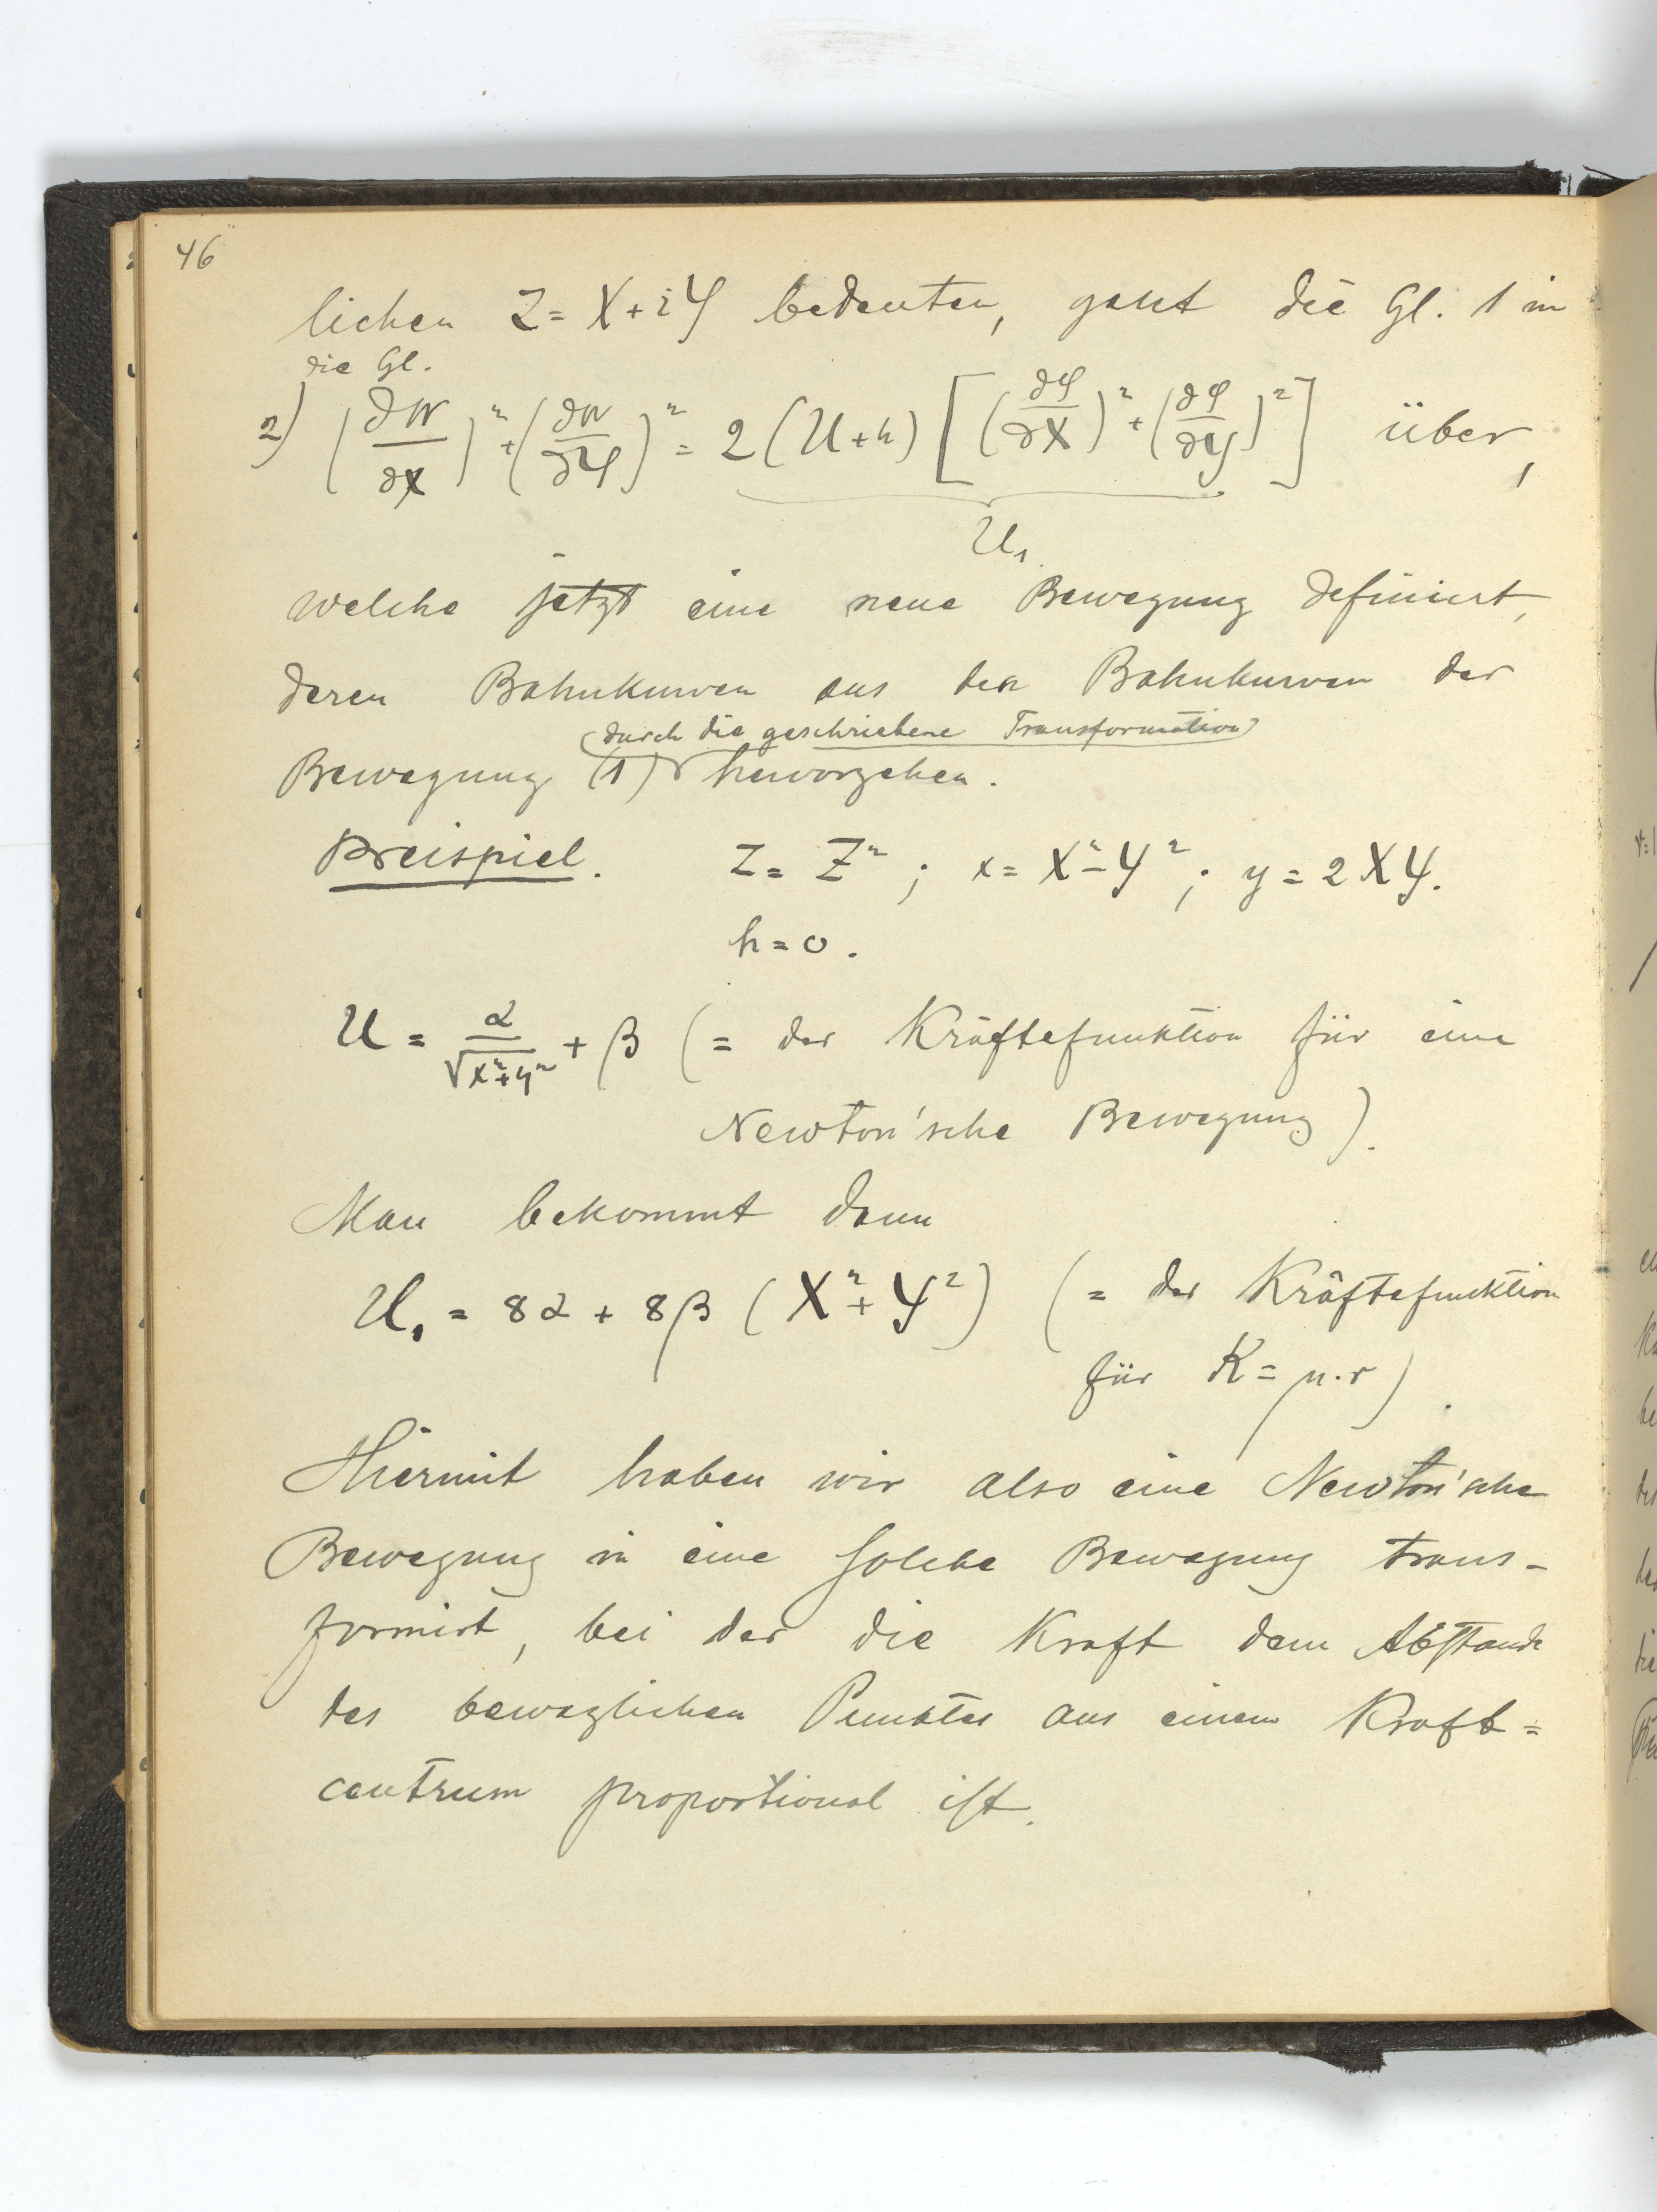 46
lichen Z = X + iY bedeuten, geht die Gl. 1 in
die Gl.
2) (∂W/∂X)² + (∂W/∂Y)² = 2 (U + h) [(∂φ/∂X)² + (∂φ/∂Y)²] über,
U₁
welche jetzt eine neue Bewegung definiert,
deren Bahnkurven aus den Bahnkurven der
(durch die geschriebene Transformation)
Bewegung (1) hervorgehen.
Beispiel. z = Z² ; x = X² - Y² ; y = 2XY.
h = 0.
U = α/√(x² + y²) + β (= der Kräftefunktion für eine
Newton'sche Bewegung).
Man bekommt dann
U₁ = 8α + 8β (X² + Y²) (= der Kräftefunktion
für K = μ.r).
Hiermit haben wir also eine Newton'sche
Bewegung in eine solche Bewegung trans-
formirt, bei der die Kraft dem Abstande
des beweglichen Punktes aus einem Kraft=
centrum proportional ist.